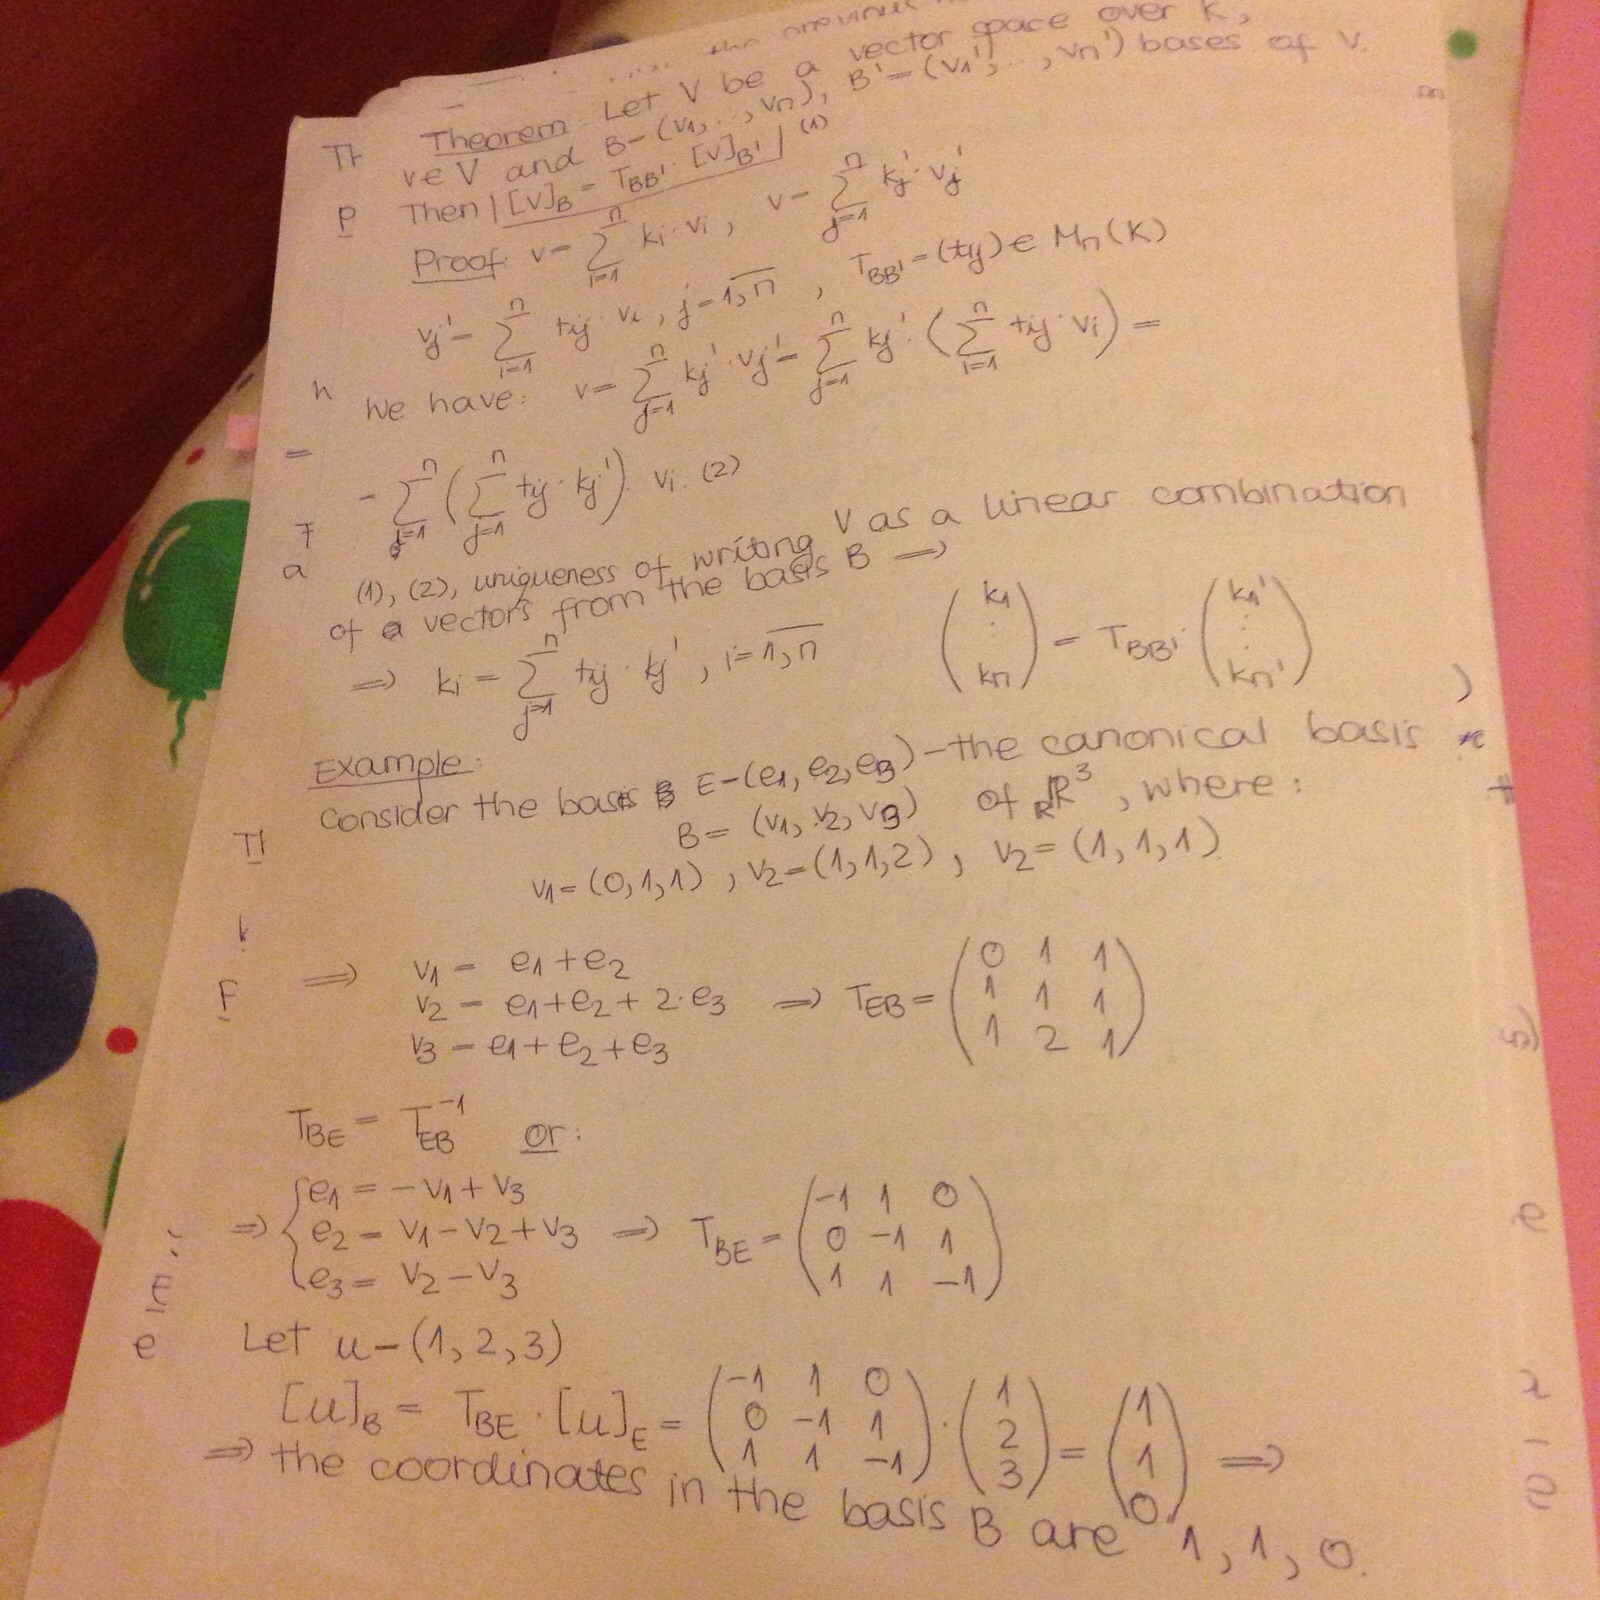 the previous
Theorem. Let V be a vector space over K,
v∈V and B=(v1,..,vn), B'=(v1',..,vn') bases of V.
Then [v]B = TBB' · [v]B' (1)
Proof: v= ∑ⁿᵢ₌₁ ki·vi, v= ∑ⁿⱼ₌₁ kj'·vj'
vj'= ∑ⁿᵢ₌₁ tij·vi, j=1,n , TBB'=(tij)∈Mn(K)
We have: v= ∑ⁿⱼ₌₁ kj'·vj'= ∑ⁿⱼ₌₁ kj'·(∑ⁿᵢ₌₁ tij·vi)=
= ∑ⁿⱼ₌₁ (∑ⁿⱼ₌₁ tij·kj')·vi (2)
(1), (2), uniqueness of writing V as a linear combination
of a vectors from the basis B ⟹
⟹ ki = ∑ⁿⱼ₌₁ tij·kj', i=1,n (k1 ⋮ kn) = TBB'·(k1' ⋮ kn')
Example:
Consider the bases E=(e1, e2, e3)-the canonical basis
B= (v1, v2, v3) of RR³, where:
v1=(0,1,1), v2=(1,1,2), v2=(1,1,1)
⟹ v1 = e1+e2
v2 = e1+e2+2·e3 ⟹ TEB= (0 1 1
1 1 1
v3 = e1+e2+e3 1 2 1)
TBE = TEB⁻¹ or:
e1 = -v1+v3 (-1 1 0
⟹ { e2 = v1-v2+v3 ⟹ TBE= 0 -1 1
e3 = v2-v3 1 1 -1)
Let u=(1,2,3)
[u]B = TBE·[u]E = (-1 1 0 0 -1 1 1 1 -1)·(1 2 3)=(1 1 0) ⟹
⟹ the coordinates in the basis B are 1, 1, 0.